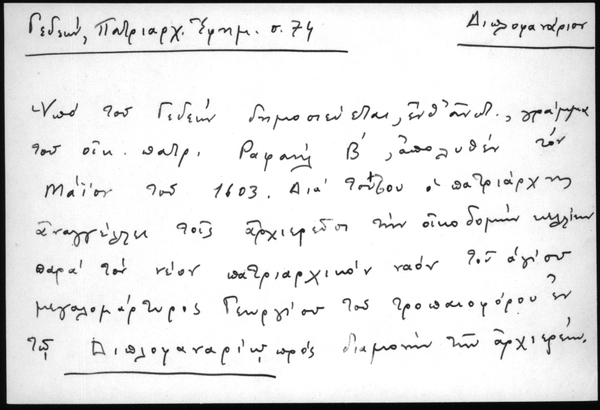 Γεδεών, Πατριαρχ. Ἐφημ. σ. 74
Διπλοφανάριον
Ὑπό τοῦ Γεδεών δημοσιεύεται, ἔνθ' ἀνωτ., γράμμα
τοῦ οἰκ. πατρ. Ραφαήλ Β', ἀπολυθέν τόν
Μάϊον τοῦ 1603. Διά τούτου ὁ πατριάρχης
ἀναγγέλλει τοῖς ἀρχιερεῦσι τήν οἰκοδομήν κελλίων
παρά τόν νέον πατριαρχικόν ναόν τοῦ ἁγίου
μεγαλομάρτυρος Γεωργίου τοῦ τροπαιοφόρου ἐν
τῷ Διπλοφαναρίῳ πρός διαμονήν τῶν ἀρχιερέων.